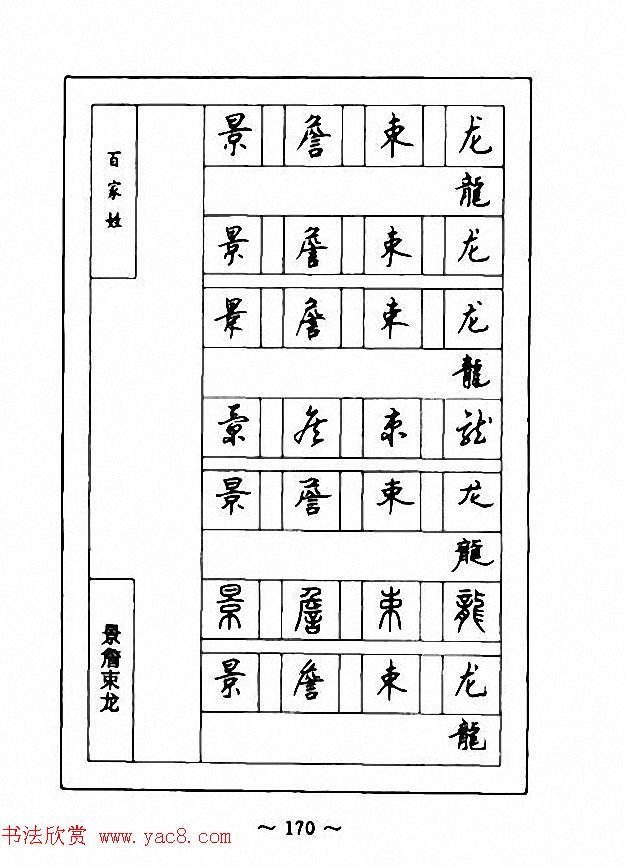 百家姓
景詹束龙
龍
景詹束龙
景詹束龙
龍
景詹束龙
景詹束龙
龍
景詹束龍
景詹束龙
龍
景詹束龙
~ 170 ~
书法欣赏 www.yac8.com